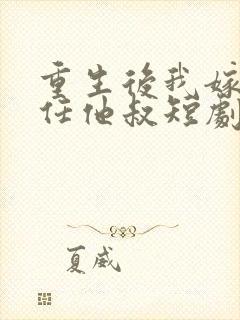 重生後我嫁
任他叔短劇
夏威